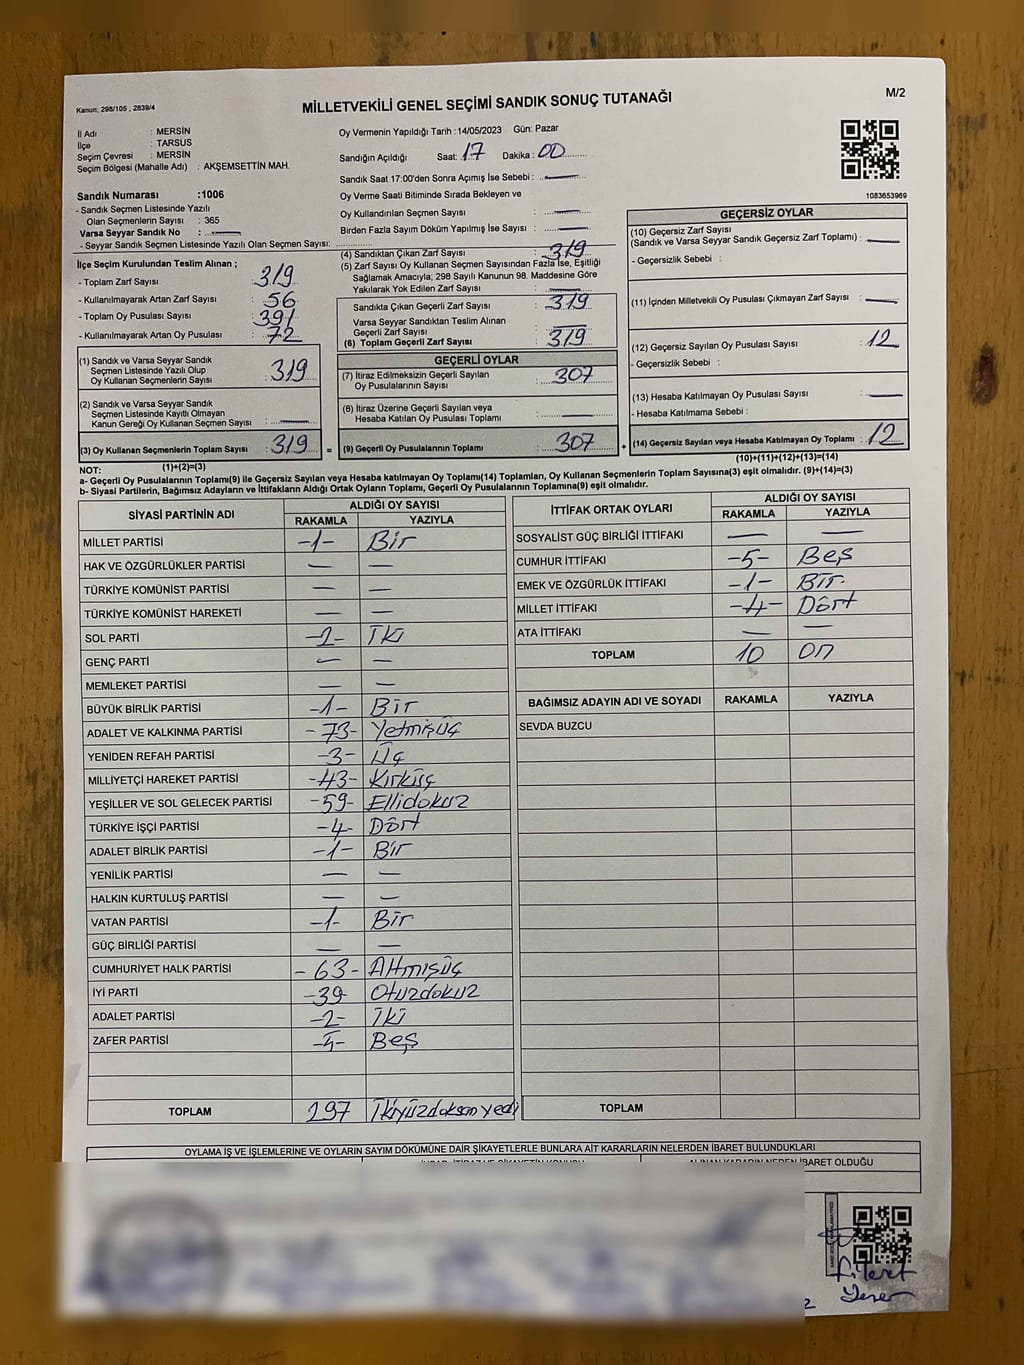 Kanun; 298/105 , 2839/4
MİLLETVEKİLİ GENEL SEÇİMİ SANDIK SONUÇ TUTANAĞI
M/2
İl Adı : MERSİN
İlçe : TARSUS
Seçim Çevresi : MERSİN
Seçim Bölgesi (Mahalle Adı) : AKŞEMSETTİN MAH.
Oy Vermenin Yapıldığı Tarih :14/05/2023 Gün: Pazar
Sandığın Açıldığı Saat: 17 Dakika : 00
Sandık Saat 17:00'den Sonra Açımış İse Sebebi : —
Oy Verme Saati Bitiminde Sırada Bekleyen ve
Oy Kullandırılan Seçmen Sayısı : —
Birden Fazla Sayım Döküm Yapılmış İse Sayısı : —
1083653969
Sandık Numarası :1006
- Sandık Seçmen Listesinde Yazılı
Olan Seçmenlerin Sayısı : 365
Varsa Seyyar Sandık No : —
- Seyyar Sandık Seçmen Listesinde Yazılı Olan Seçmen Sayısı:
İlçe Seçim Kurulundan Teslim Alınan ;
- Toplam Zarf Sayısı : 319
- Kullanılmayarak Artan Zarf Sayısı : 56
- Toplam Oy Pusulası Sayısı : 391
- Kullanılmayarak Artan Oy Pusulası : 72
(1) Sandık ve Varsa Seyyar Sandık
Seçmen Listesinde Yazılı Olup
Oy Kullanan Seçmenlerin Sayısı : 319
(2) Sandık ve Varsa Seyyar Sandık
Seçmen Listesinde Kayıtlı Olmayan
Kanun Gereği Oy Kullanan Seçmen Sayısı : —
(3) Oy Kullanan Seçmenlerin Toplam Sayısı : 319 =
(1)+(2)=(3)
(4) Sandıktan Çıkan Zarf Sayısı : 319
(5) Zarf Sayısı Oy Kullanan Seçmen Sayısından Fazla İse, Eşitliği
Sağlamak Amacıyla; 298 Sayılı Kanunun 98. Maddesine Göre
Yakılarak Yok Edilen Zarf Sayısı : —
Sandıkta Çıkan Geçerli Zarf Sayısı : 319
Varsa Seyyar Sandıktan Teslim Alınan
Geçerli Zarf Sayısı : —
(6) Toplam Geçerli Zarf Sayısı : 319
GEÇERLİ OYLAR
(7) İtiraz Edilmeksizin Geçerli Sayılan
Oy Pusulalarının Sayısı : 307
(8) İtiraz Üzerine Geçerli Sayılan veya
Hesaba Katılan Oy Pusulası Toplamı : —
(9) Geçerli Oy Pusulalarının Toplamı : 307 +
GEÇERSİZ OYLAR
(10) Geçersiz Zarf Sayısı
(Sandık ve Varsa Seyyar Sandık Geçersiz Zarf Toplamı) : —
- Geçersizlik Sebebi :
(11) İçinden Milletvekili Oy Pusulası Çıkmayan Zarf Sayısı : —
(12) Geçersiz Sayılan Oy Pusulası Sayısı : 12
- Geçersizlik Sebebi :
(13) Hesaba Katılmayan Oy Pusulası Sayısı : —
- Hesaba Katılmama Sebebi :
(14) Geçersiz Sayılan veya Hesaba Katılmayan Oy Toplamı : 12
(10)+(11)+(12)+(13)=(14)
NOT:
a- Geçerli Oy Pusulalarının Toplamı(9) ile Geçersiz Sayılan veya Hesaba katılmayan Oy Toplamı(14) Toplamları, Oy Kullanan Seçmenlerin Toplam Sayısına(3) eşit olmalıdır. (9)+(14)=(3)
b- Siyasi Partilerin, Bağımsız Adayların ve İttifakların Aldığı Ortak Oyların Toplamı, Geçerli Oy Pusulalarının Toplamına(9) eşit olmalıdır.
SİYASİ PARTİNİN ADI ALDIĞI OY SAYISI
RAKAMLA YAZIYLA
MİLLET PARTİSİ -1- Bir
HAK VE ÖZGÜRLÜKLER PARTİSİ — —
TÜRKİYE KOMÜNİST PARTİSİ — —
TÜRKİYE KOMÜNİST HAREKETİ — —
SOL PARTİ -2- İki
GENÇ PARTİ — —
MEMLEKET PARTİSİ — —
BÜYÜK BİRLİK PARTİSİ -1- Bir
ADALET VE KALKINMA PARTİSİ -73- Yetmişüç
YENİDEN REFAH PARTİSİ -3- Üç
MİLLİYETÇİ HAREKET PARTİSİ -43- Kırküç
YEŞİLLER VE SOL GELECEK PARTİSİ -59- Ellidokuz
TÜRKİYE İŞÇİ PARTİSİ -4- Dört
ADALET BİRLİK PARTİSİ -1- Bir
YENİLİK PARTİSİ — —
HALKIN KURTULUŞ PARTİSİ — —
VATAN PARTİSİ -1- Bir
GÜÇ BİRLİĞİ PARTİSİ — —
CUMHURİYET HALK PARTİSİ -63- Altmışüç
İYİ PARTİ -39- Otuzdokuz
ADALET PARTİSİ -2- İki
ZAFER PARTİSİ -5- Beş
TOPLAM 297 İkiyüzdoksanyedi
İTTİFAK ORTAK OYLARI ALDIĞI OY SAYISI
RAKAMLA YAZIYLA
SOSYALİST GÜÇ BİRLİĞİ İTTİFAKI — —
CUMHUR İTTİFAKI -5- Beş
EMEK VE ÖZGÜRLÜK İTTİFAKI -1- Bir.
MİLLET İTTİFAKI -4- Dört
ATA İTTİFAKI — —
TOPLAM 10 On
BAĞIMSIZ ADAYIN ADI VE SOYADI RAKAMLA YAZIYLA
SEVDA BUZCU
TOPLAM
OYLAMA İŞ VE İŞLEMLERİNE VE OYLARIN SAYIM DÖKÜMÜNE DAİR ŞİKAYETLERLE BUNLARA AİT KARARLARIN NELERDEN İBARET BULUNDUKLARI
ALINAN KARARIN NEDEN İBARET OLDUĞU